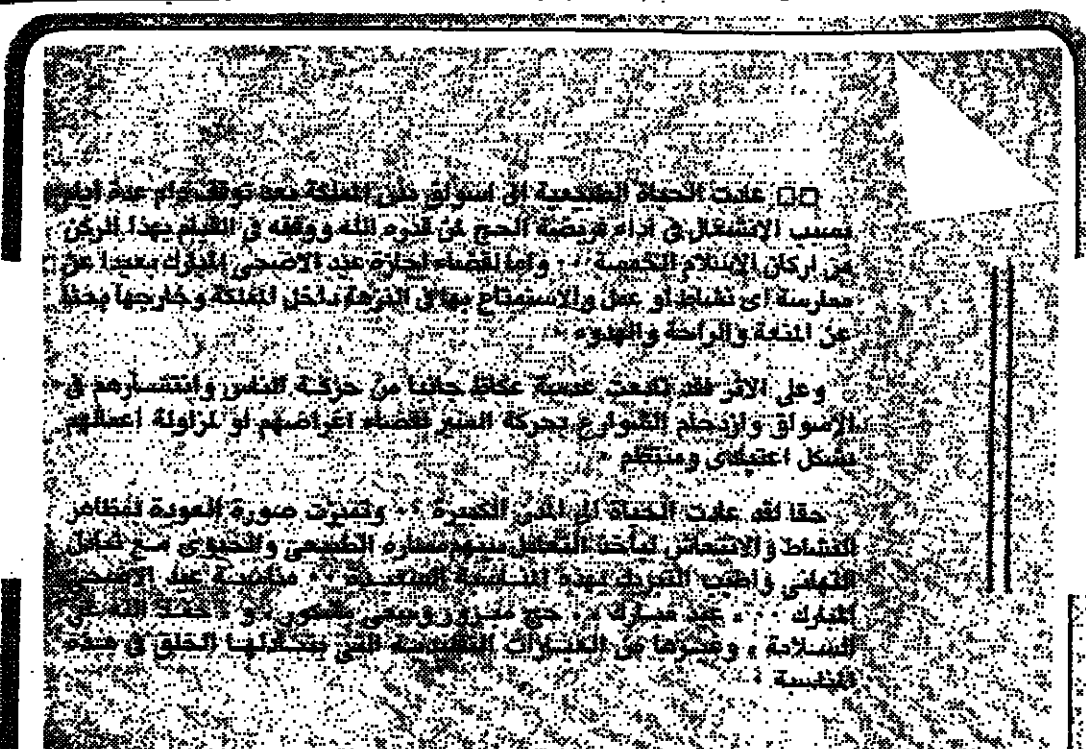 □□ عادت الحياة الطبيعية الى اسواق مدن المملكة بعد توقف دام عدة ايام
بسبب الانشغال في اداء فريضة الحج لمن قدره الله ووفقه في القيام بهذا الركن
من اركان الاسلام الخمسة ٠٠ واما لقضاء اجازة عيد الاضحى المبارك بعيدا عن
ممارسة اي نشاط او عمل والاستمتاع بها في النزهة داخل المملكة وخارجها بحثا
عن المتعة والراحة والهدوء ٠
وعلى الاثر فقد تابعت عدسة عكاظ جانبا من حركة الناس وانتشارهم في
الاسواق وازدحام الشوارع بحركة السير لقضاء اغراضهم او لمزاولة اعمالهم
بشكل اعتيادي ومنتظم ٠
حقا لقد عادت الحياة الى المدن الكبيرة ٠٠ وتميزت صورة العودة لمظاهر
النشاط والانتعاش ليأخذ التعامل بينهم مساره الطبيعي والحيوي مع تبادل
التهاني واطيب التبريك بهذه المناسبة السعيدة ٠٠ مناسبة عيد الاضحى
المبارك ٠٠ « عيد مبارك » « حج مبرور وسعي مشكور » و « على
السلامة » وغيرها من العبارات التقليدية التي يتبادلها الخلق في هذه
المناسبة ٠